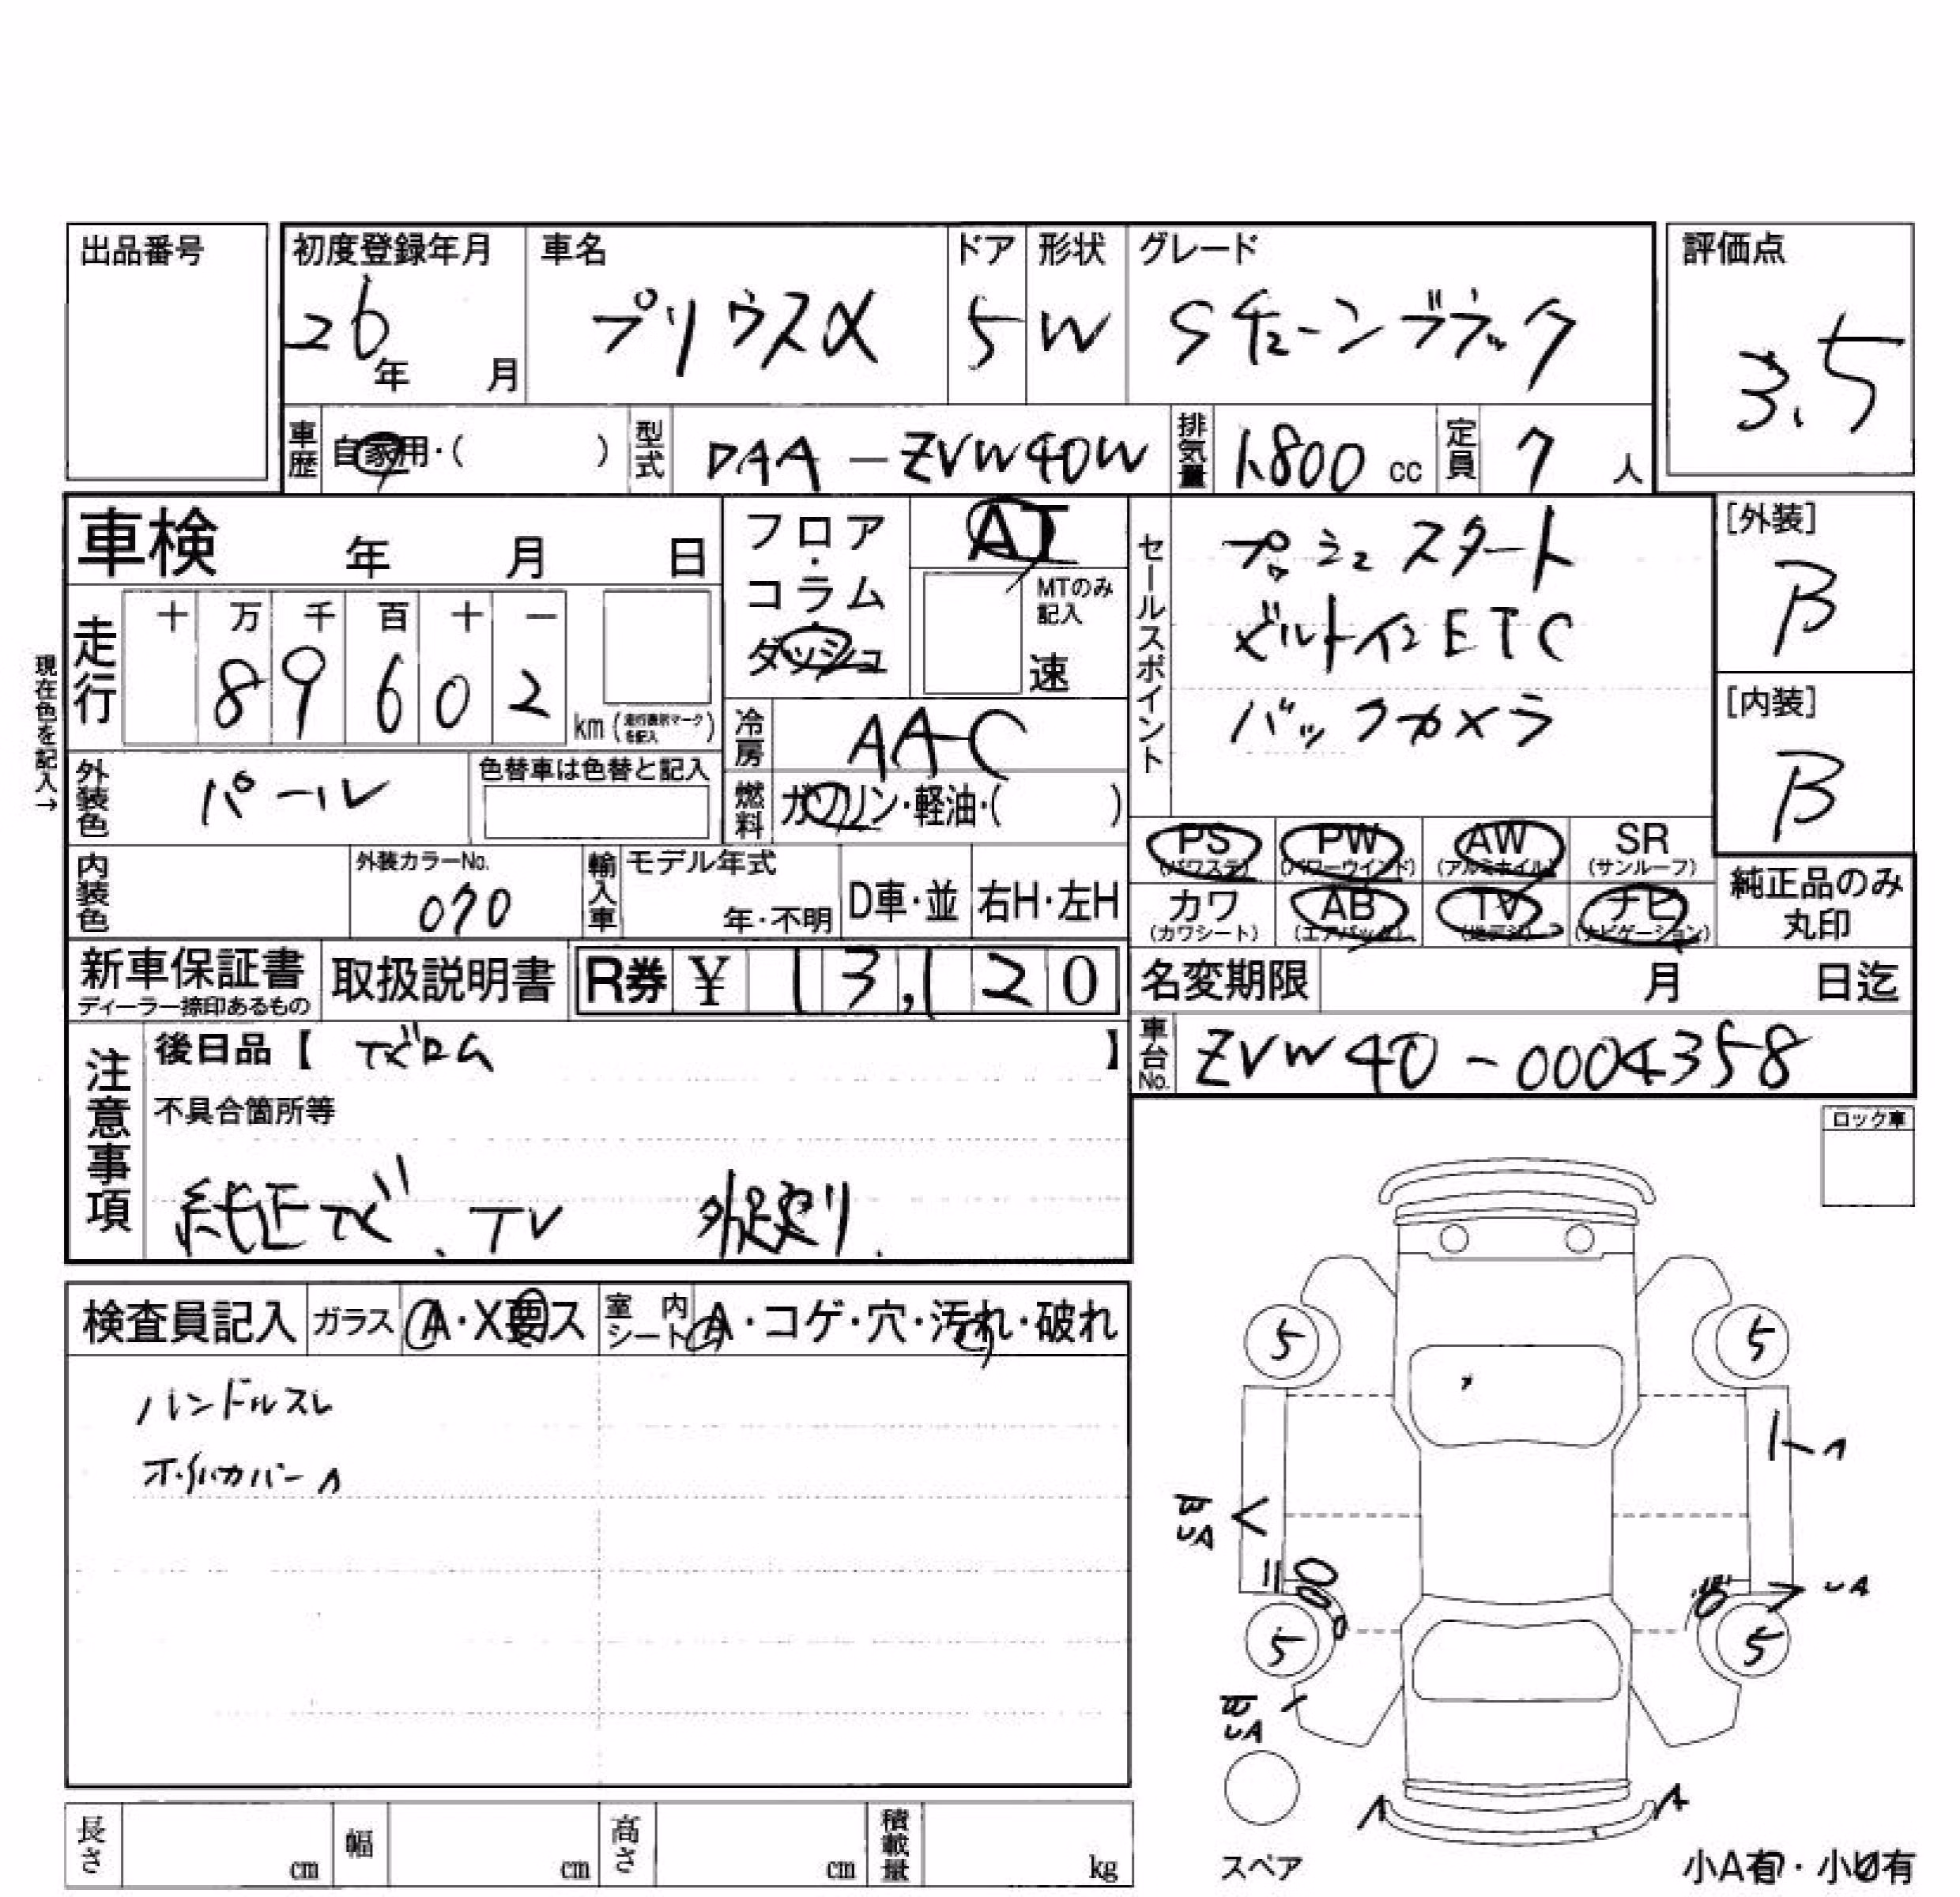 出品番号
初度登録年月 車名 ドア 形状 グレード 評価点
26年 月 プリウスα 5 W Sチューンブラック 3.5
車歴 自家用・( ) 型式 DAA-ZVW40W 排気量 1,800cc 定員 7人
車検 年 月 日
フロア・コラム・ダッシュ
AT
MTのみ記入
速
セールスポイント
プッシュスタート
ビルトインETC
バックカメラ
[外装]
B
[内装]
B
現在色を記入→
走行 十 万 千 百 十 一
8 9 6 0 2 km
冷房 AAC
外装色 パール 色替車は色替と記入
燃料 ガソリン・軽油・( )
PS PW AW SR
(パワステ) (パワーウインド) (アルミホイル) (サンルーフ)
カワ AB TV ナビ
(カワシート) (エアバック) (地デジ) (ナビゲーション)
純正品のみ丸印
内装色 外装カラーNo. 070 輸入車 モデル年式 年・不明 D車・並 右H・左H
新車保証書 取扱説明書 R券 ¥ 13,120 名変期限 月 日迄
ディーラー捺印あるもの
車台No. ZVW40-0004358
注意事項
後日品【 ナビロム 】
不具合箇所等
純正ナビ、TV
ロック車
検査員記入 ガラス A・X要ス 室内シート A・コゲ・穴・汚れ・破れ
ハンドルスレ
ホイルカバーA
5 5
A
UA
UA
5 5
UA
A A
スペア
小A有・小U有
長さ cm 幅 cm 高さ cm 積載量 kg